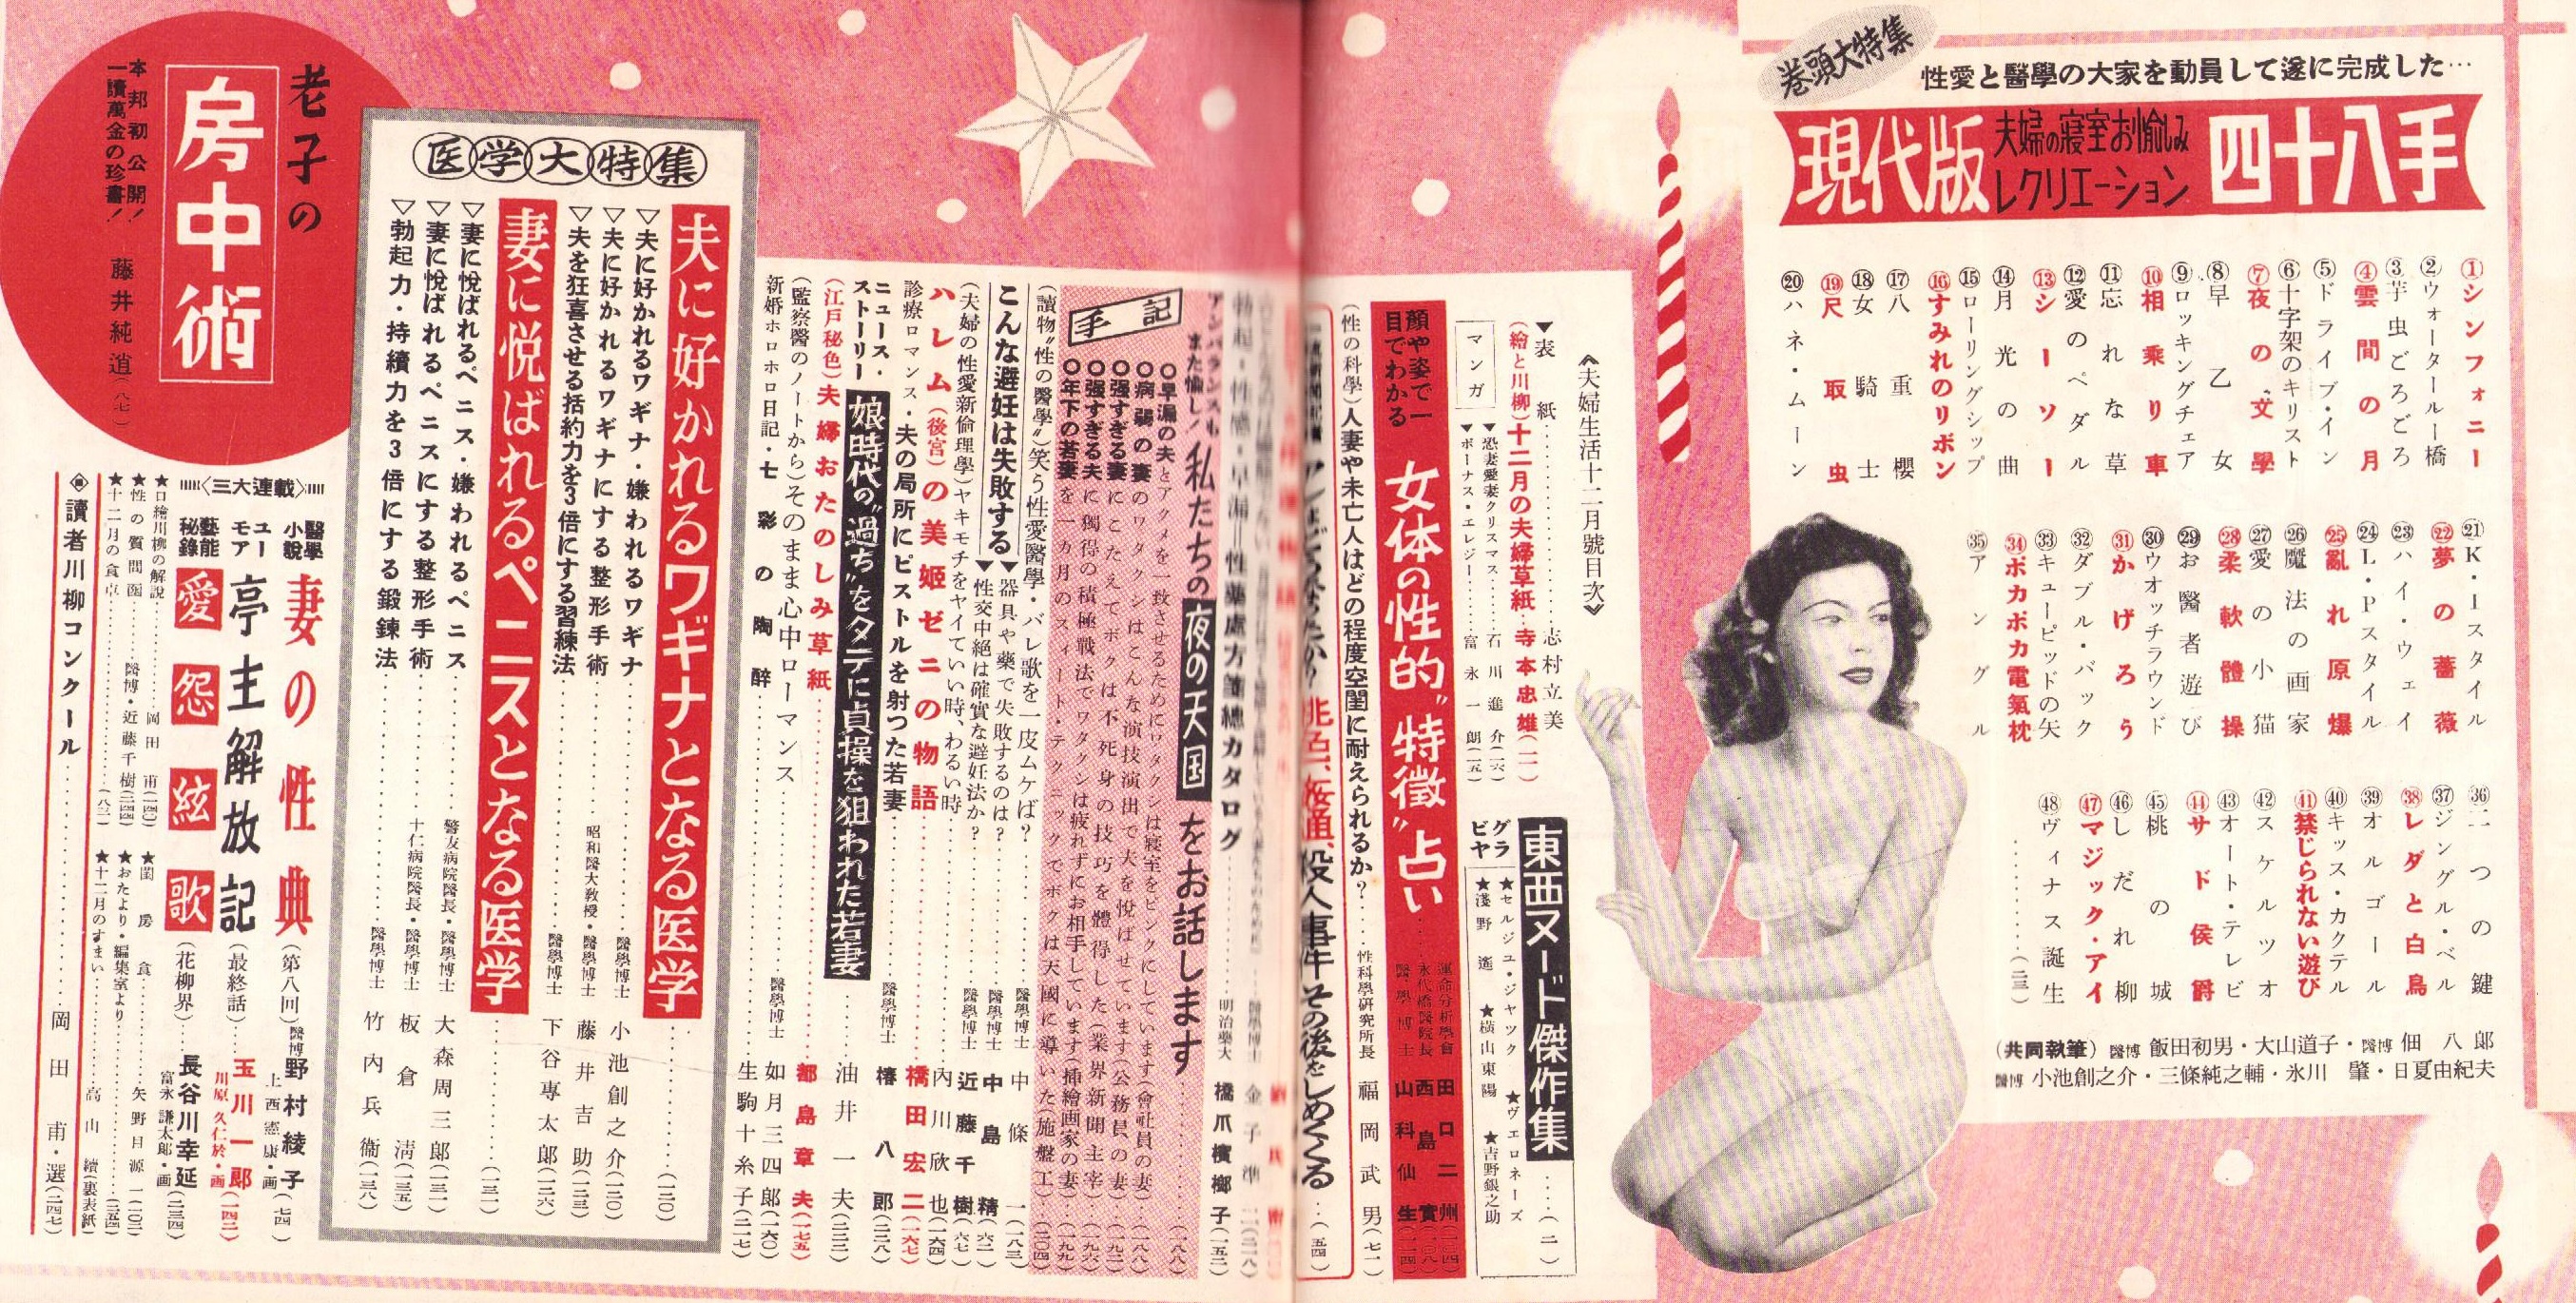 巻頭大特集
性愛と醫學の大家を動員して遂に完成した…
現代版
夫婦の寝室お愉しみ
レクリエーション
四十八手
①シンフォニー
②ウォータールー橋
③芋虫ごろごろ
④雲間の月
⑤ドライブ・イン
⑥十字架のキリスト
⑦夜の“文學
⑧早乙女
⑨ロッキングチェア
⑩相乘り車
⑪忘れな草
⑫愛のペダル
⑬シーソー
⑭月光の曲
⑮ローリングシップ
⑯すみれのリボン
⑰八重櫻
⑱女騎士
⑲尺取虫
⑳ハネ・ムーン
㉑K・Iスタイル
㉒夢の薔薇
㉓ハイ・ウェイ
㉔L・Pスタイル
㉕亂れ原爆
㉖魔法の画家
㉗愛の小猫
㉘柔軟體操
㉙お醫者遊び
㉚ウオッチラウンド
㉛かげろう
㉜ダブル・バック
㉝キューピッドの矢
㉞ポカポカ電氣枕
㉟アングル
㊱二つの鍵
㊲ジングル・ベル
㊳レダと白鳥
㊴オルゴール
㊵キッス・カクテル
㊶禁じられない遊び
㊷スケルツオ
㊸オート・テレビ
㊹サド侯爵
㊺桃の城
㊻しだれ柳
㊼マジック・アイ
㊽ヴィナス誕生
…………(三)
(共同執筆) 醫博 飯田初男・大山道子・醫博 佃八郎
醫博 小池創之介・三條純之輔・氷川肇・日夏由紀夫
《夫婦生活十二月號目次》
▼表紙…………志村立美
(繪と川柳)十二月の夫婦草紙…寺本忠雄(一一)
マンガ
▼恐妻愛妻クリスマス……石川進介(一六)
▼ボーナス・エレジー……富永一朗(一五)
グラビヤ
東西ヌード傑作集……(二)
★セルジユ・ジャック ★ヴェロネーズ
★淺野遙 ★横山東陽 ★吉野銀之助
顔や姿で一目でわかる
女体の性的“特徴”占い
運命分析學會 田口二州
永代橋醫院長 西島實
醫學博士 山科仙生
(性の科學)人妻や未亡人はどの程度空閨に耐えられるか?……性科學研究所長 福岡武男(七一)
殺人事件その後をしめくる……(五四)
性藥處方箋總カタログ……明治藥大 橋爪檳榔子(一五二)
手記
また愉し!私たちの夜の天国をお話します……(一八八)
○早漏の夫とアクメを一致させるためにワタクシは寝室をピンクにしています(會社員の妻)
○病弱の妻のワタクシはこんな演技演出で夫を悅ばせています(公務員の妻)
○强すぎる妻にこたえてボクは不死身の技巧を體得した(業界新聞主宰)
○强すぎる夫に獨得の積極戰法でワタクシは疲れずにお相手しています(挿繪画家の妻)
○年下の若妻を一カ月のスィート・テクニックでボクは天國に導いた(施盤工)
(讀物“性の醫學)笑う性愛醫學・バレ歌を一皮ムケば?……醫學博士 中條一(一八三)
こんな避妊は失敗する
▼器具や藥で失敗するのは?……醫學博士 中島精(六二)
▼性交中絶は確實な避妊法か?……醫學博士 近藤千樹(六七)
(夫婦の性愛新倫理學)ヤキモチをヤイていい時、わるい時……内川欣也(一六四)
ハレム(後宮)の美姫ゼニの物語……橋田宏二(一六七)
診療ロマンス・夫の局所にピストルを射つた若妻……醫學博士 椿八郎(二二八)
ニュース・ストーリー
娘時代の“過ち”をタテに貞操を狙われた若妻……油井一夫(二二二)
(江戸秘色)夫婦おたのしみ草紙……都島章夫(一七五)
(監察醫のノートから)そのまま心中ローマンス……醫學博士 如月三四郎(一六〇)
新婚ホロホロ日記・七彩の陶醉……生駒十糸子(二一七)
医学大特集
夫に好かれるワギナとなる医学……(一二〇)
▽夫に好かれるワギナ・嫌われるワギナ……醫學博士 小池創之介(一二〇)
▽夫に好かれるワギナにする整形手術……昭和醫大教授・醫學博士 藤井吉助(一二三)
▽夫を狂喜させる括約力を3倍にする習練法……醫學博士 下谷專太郎(一二六)
妻に悦ばれるペニスとなる医学……(一三一)
▽妻に悅ばれるペニス・嫌われるペニス……警友病院醫長・醫學博士 大森周三郎(一三一)
▽妻に悅ばれるペニスにする整形手術……十仁病院醫長・醫學博士 板倉淸(一三五)
▽勃起力・持續力を3倍にする鍛鍊法……醫學博士 竹內兵衞(一三八)
老子の
房中術
本邦初公開!
一讀萬金の珍書!
藤井純逍(八七)
〈三大連載〉
醫學小説 妻の性典(第八回)醫博 野村綾子(七四)
上西憲康・画
ユーモア 亭主解放記(最終話)……玉川一郎(一四二)
川原久仁於・画
藝能秘錄 愛怨絃歌(花柳界)……長谷川幸延(二三四)
富永謙太郎・画
★口繪川柳の解說……岡田甫(一四〇)
★性の質問函……醫博・近藤千樹(二四四)
★十二月の食卓……(八二)
★閨房食……矢野目源一(二〇二)
★おたより・編集室より……(二五四)
★十二月のすまい……高山續(裏表紙)
◉讀者川柳コンクール……岡田甫・選(二四七)